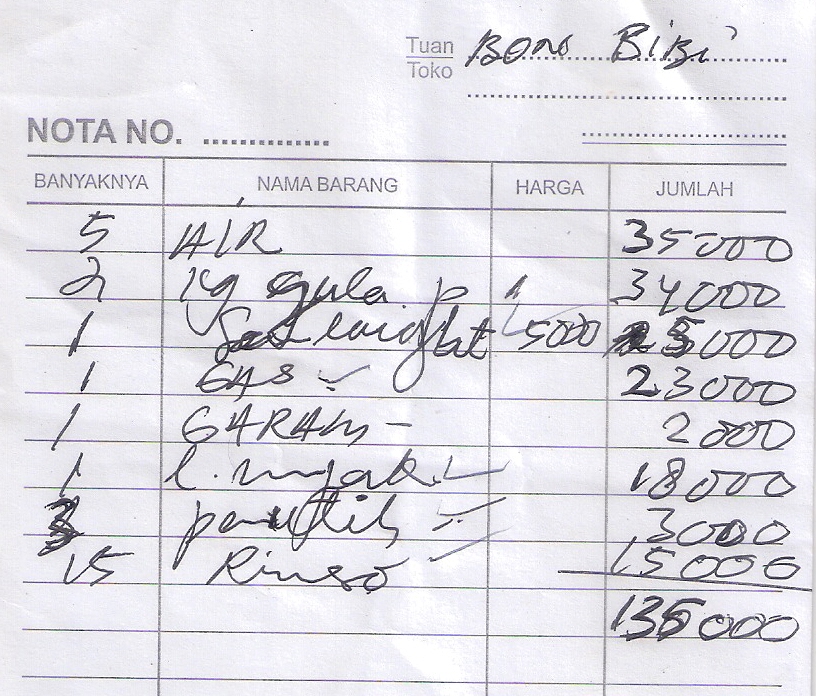 Tuan Toko Bon Bibi
NOTA NO.
BANYAKNYA NAMA BARANG HARGA JUMLAH
5 AIR 35000
2 kg gula p 34000
1 Sunlaight 5000 5000
1 GAS 23000
1 GARAM - 2000
1 l. minyak 18000
3 pemutih 3000
15 Rinso 15000
135000